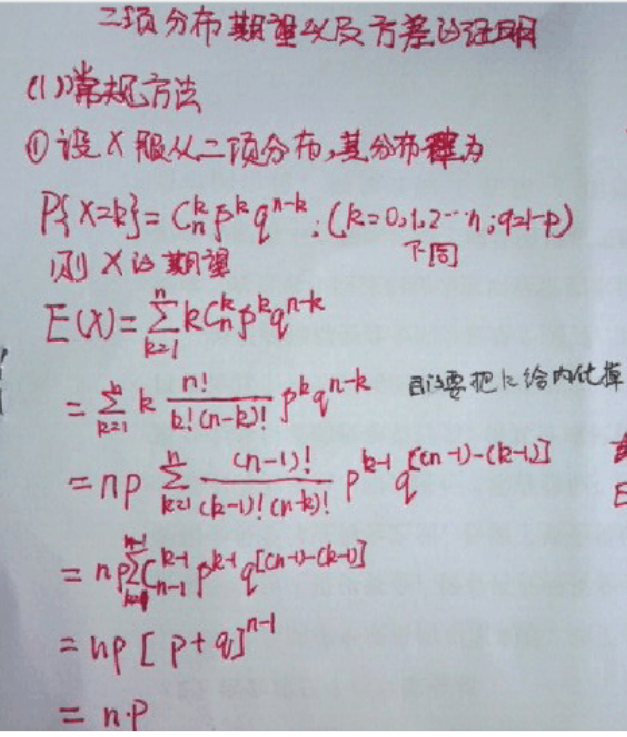 二项分布期望以及方差的证明
(1)常规方法
①设X服从二项分布,其分布律为
P{X=k}=C_n^k p^k q^{n-k};(k=0,1,2…n;q=1-p)
下同
则X的期望
E(X)=∑_{k=1}^{n} kC_n^k p^k q^{n-k}
=∑_{k=1}^{n} k n!/(k!(n-k)!) p^k q^{n-k} 目的要把k给内化掉
=np ∑_{k=1}^{n} (n-1)!/((k-1)!(n-k)!) p^{k-1} q^{[(n-1)-(k-1)]}
=np∑C_{n-1}^{k-1} p^{k-1} q^{[(n-1)-(k-1)]}
=np[p+q]^{n-1}
=n·p